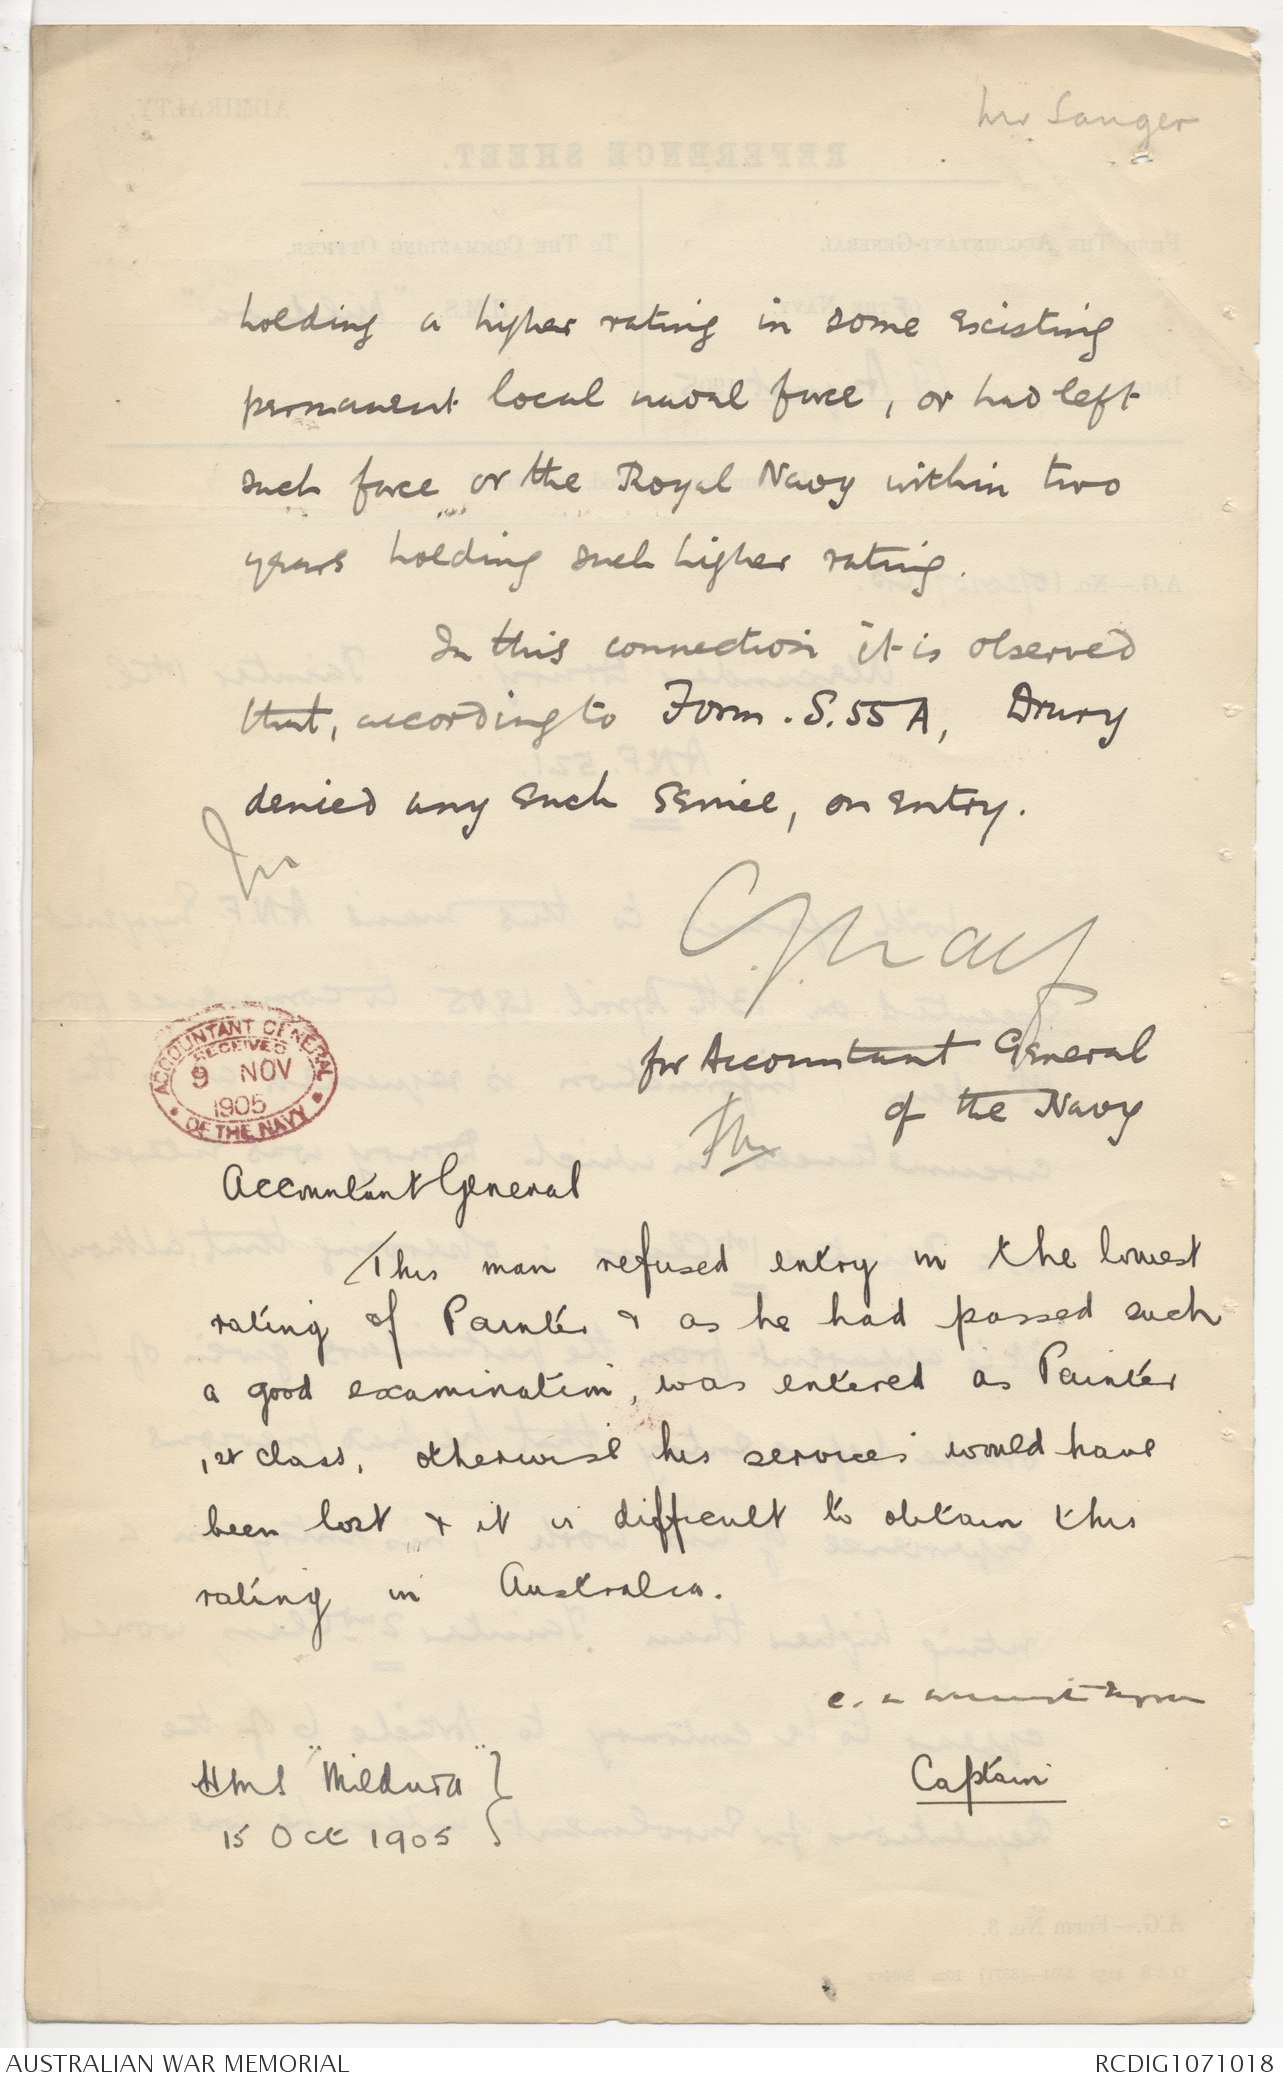 Mr Sanger
holding a higher rating in some existing
permanent local naval force, or had left
such force or the Royal Navy within two
years holding such higher rating.
In this connection it is observed
that, according to Form. S. 55A, Drury
denied any such service, on entry.
for Accountant General
of the Navy
ACCOUNTANT GENERAL
RECEIVED
9 NOV
1905
OF THE NAVY
Accountant General
This man refused entry in the lowest
rating of Painter & as he had passed such
a good examination, was entered as Painter
1st class, otherwise his services would have
been lost & it is difficult to obtain this
rating in Australia.
Captain
HMS "Mildura"
15 Oct 1905
AUSTRALIAN WAR MEMORIAL
RCDIG1071018